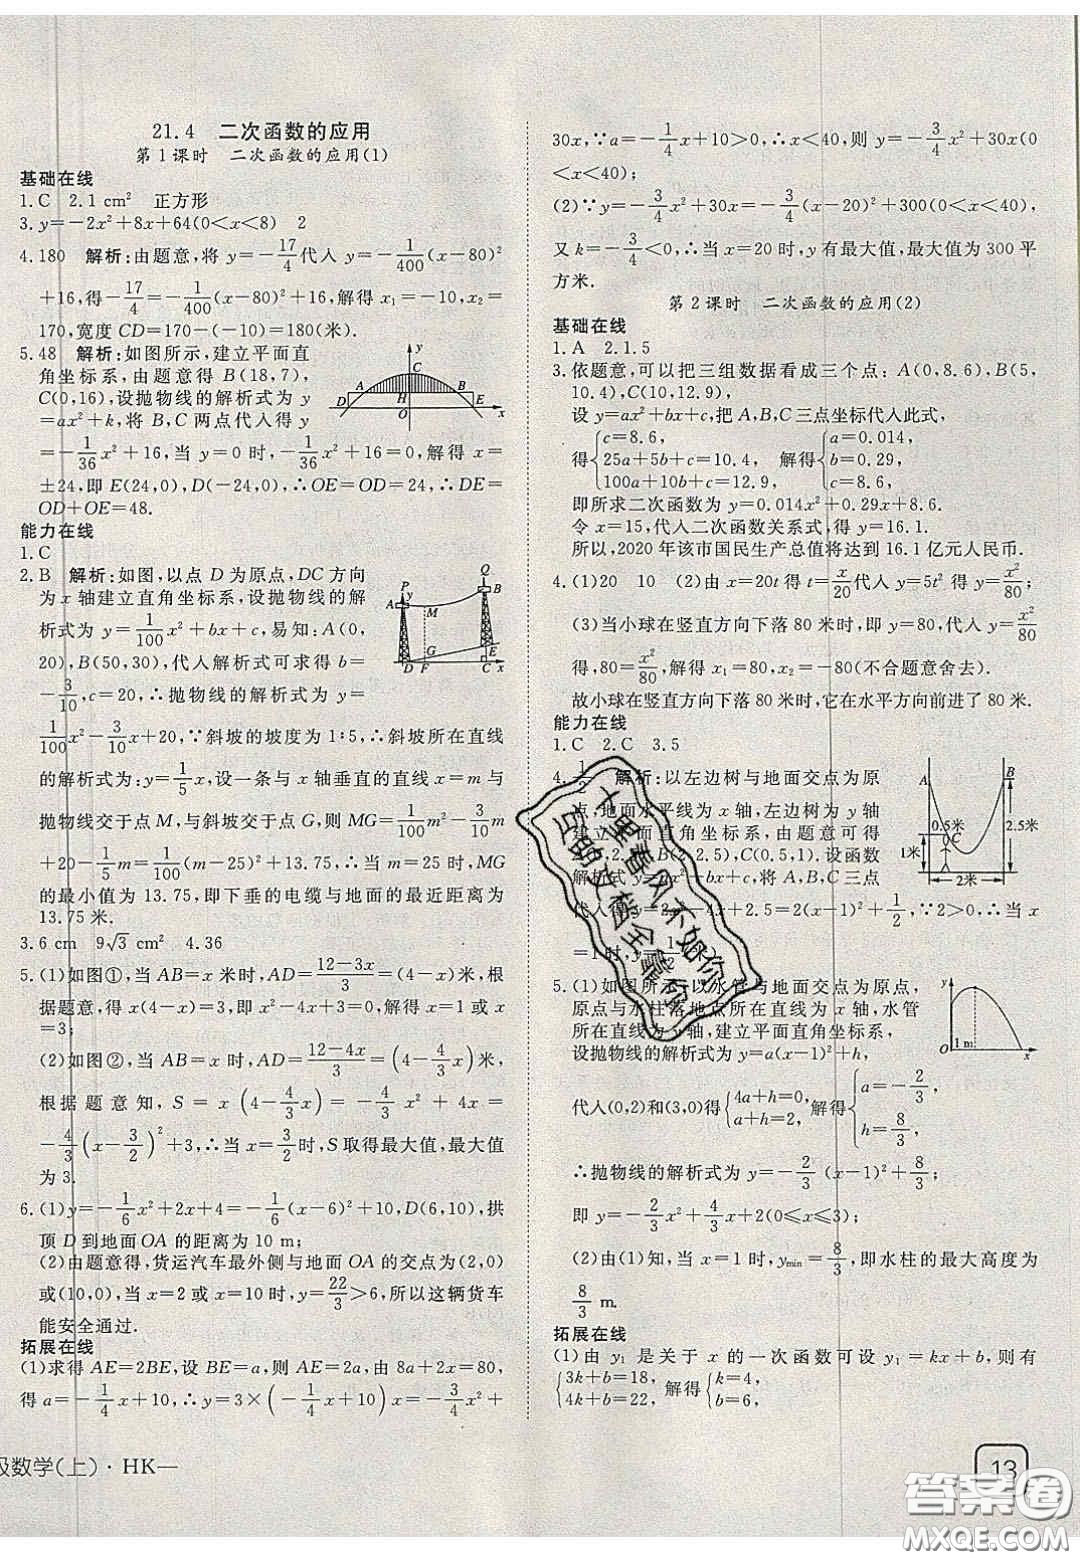 21.4 二次函数的应用
第1课时 二次函数的应用(1)
基础在线
1.C 2.1 cm² 正方形
3.y=-2x²+8x+64(0<x<8) 2
4.180 解析:由题意,将 y=-17/4代入 y=-1/400(x-80)²
+16,得-17/4=-1/400(x-80)²+16,解得 x₁=-10,x₂=
170,宽度 CD=170-(-10)=180(米).
5.48 解析:如图所示,建立平面直
角坐标系,由题意得 B(18,7),
C(0,16),设抛物线的解析式为 y
=ax²+k,将 B,C 两点代入得 y
=-1/36x²+16,当 y=0 时,-1/36x²+16=0,解得 x=
±24,即 E(24,0),D(-24,0),∴OE=OD=24,∴DE=
OD+OE=48.
y
C
A
B
D
H
E
O
x
能力在线
1.C
2.B 解析:如图,以点 D 为原点,DC 方向
为 x 轴建立直角坐标系,设抛物线的解
析式为 y=1/100x²+bx+c,易知:A(0,
20),B(50,30),代入解析式可求得 b=
-3/10,c=20,∴抛物线的解析式为 y=
P
y
Q
A
M
B
G
E
D
F
C
x
1/100x²-3/10x+20,∵斜坡的坡度为 1:5,∴斜坡所在直线
的解析式为:y=1/5x,设一条与 x 轴垂直的直线 x=m 与
抛物线交于点 M,与斜坡交于点 G,则 MG=1/100m²-3/10m
+20-1/5m=1/100(m-25)²+13.75,∴当 m=25 时,MG
的最小值为 13.75,即下垂的电缆与地面的最近距离为
13.75 米.
3.6 cm 9√3 cm² 4.36
5.(1)如图①,当 AB=x 米时,AD=(12-3x)/3=(4-x)米,根
据题意,得 x(4-x)=3,即 x²-4x+3=0,解得 x=1 或 x
=3;
(2)如图②,当 AB=x 时,AD=(12-4x)/3=(4-4/3x)米,
根据题意知,S=x(4-4/3x)=-4/3x²+4x=
-4/3(x-3/2)²+3,∴当 x=3/2时,S 取得最大值,最大值
为 3.
6.(1)y=-1/6x²+2x+4=-1/6(x-6)²+10,D(6,10),拱
顶 D 到地面 OA 的距离为 10 m;
(2)由题意得,货运汽车最外侧与地面 OA 的交点为(2,0)
或(10,0),当 x=2 或 x=10 时,y=22/3>6,所以这辆货车
能安全通过.
拓展在线
(1)求得 AE=2BE,设 BE=a,则 AE=2a,由 8a+2x=80,
得 a=-1/4x+10,∴y=3×(-1/4x+10)x=-3/4x²+
级数学(上)·HK—
30x,∵a=-1/4x+10>0,∴x<40,则 y=-3/4x²+30x(0
<x<40);
(2)∵y=-3/4x²+30x=-3/4(x-20)²+300(0<x<40),
又 k=-3/4<0,∴当 x=20 时,y 有最大值,最大值为 300 平
方米.
第2课时 二次函数的应用(2)
基础在线
1.A 2.1.5
3.依题意,可以把三组数据看成三个点:A(0,8.6),B(5,
10.4),C(10,12.9),
设 y=ax²+bx+c,把 A,B,C 三点坐标代入此式,
得{c=8.6, 25a+5b+c=10.4, 100a+10b+c=12.9, 解得{a=0.014, b=0.29, c=8.6,
即所求二次函数为 y=0.014x²+0.29x+8.6.
令 x=15,代入二次函数关系式,得 y=16.1.
所以,2020 年该市国民生产总值将达到 16.1 亿元人民币.
4.(1)20 10 (2)由 x=20t 得 t=x/20代入 y=5t² 得 y=x²/80;
(3)当小球在竖直方向下落 80 米时,即 y=80,代入 y=x²/80
得,80=x²/80,解得 x₁=80,x₂=-80(不合题意舍去).
故小球在竖直方向下落 80 米时,它在水平方向前进了 80 米.
能力在线
1.C 2.C 3.5
4.1/2 解析:以左边树与地面交点为原
点,地面水平线为 x 轴,左边树为 y 轴
建立平面直角坐标系,由题意可得
2.5),B(2,2.5),C(0.5,1).设函数
解析式 y=ax²+bx+c,将 A,B,C 三点
代入得 y=2x²-4x+2.5=2(x-1)²+1/2,∵2>0,∴当 x
=1 时,y=1/2
A
B
0.5米
C
2.5米
1米
2米
5.(1)如图所示,以水管与地面交点为原点,
原点与水柱落地点所在直线为 x 轴,水管
所在直线为 y 轴,建立平面直角坐标系,
设抛物线的解析式为 y=a(x-1)²+h,
y
O
1 m
x
代入(0,2)和(3,0)得{4a+h=0, a+h=2, 解得{a=-2/3, h=8/3,
∴抛物线的解析式为 y=-2/3(x-1)²+8/3;
即 y=-2/3x²+4/3x+2(0≤x≤3);
(2)由(1)知,当 x=1 时,ymin=8/3,即水柱的最大高度为
8/3 m.
拓展在线
(1)由 y₁ 是关于 x 的一次函数可设 y₁=kx+b,则有
{3k+b=18, 4k+b=22, 解得{k=4, b=6,
13
十里春风不如你
互助文档全靠你
答案圈
MXQE.COM